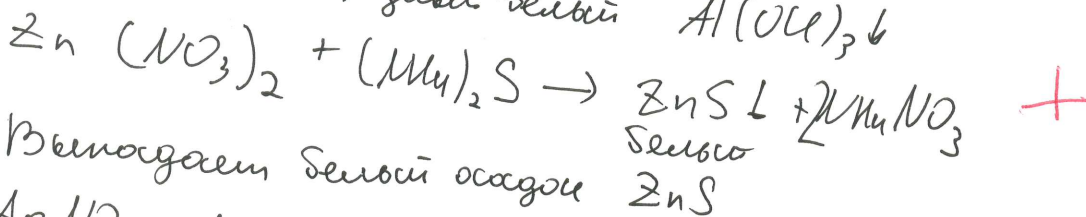 белый Al(OH)₃↓
Zn (NO₃)₂ + (NH₄)₂S → ZnS↓ + 2NH₄NO₃ +
белый
Выпадает белый осадок ZnS